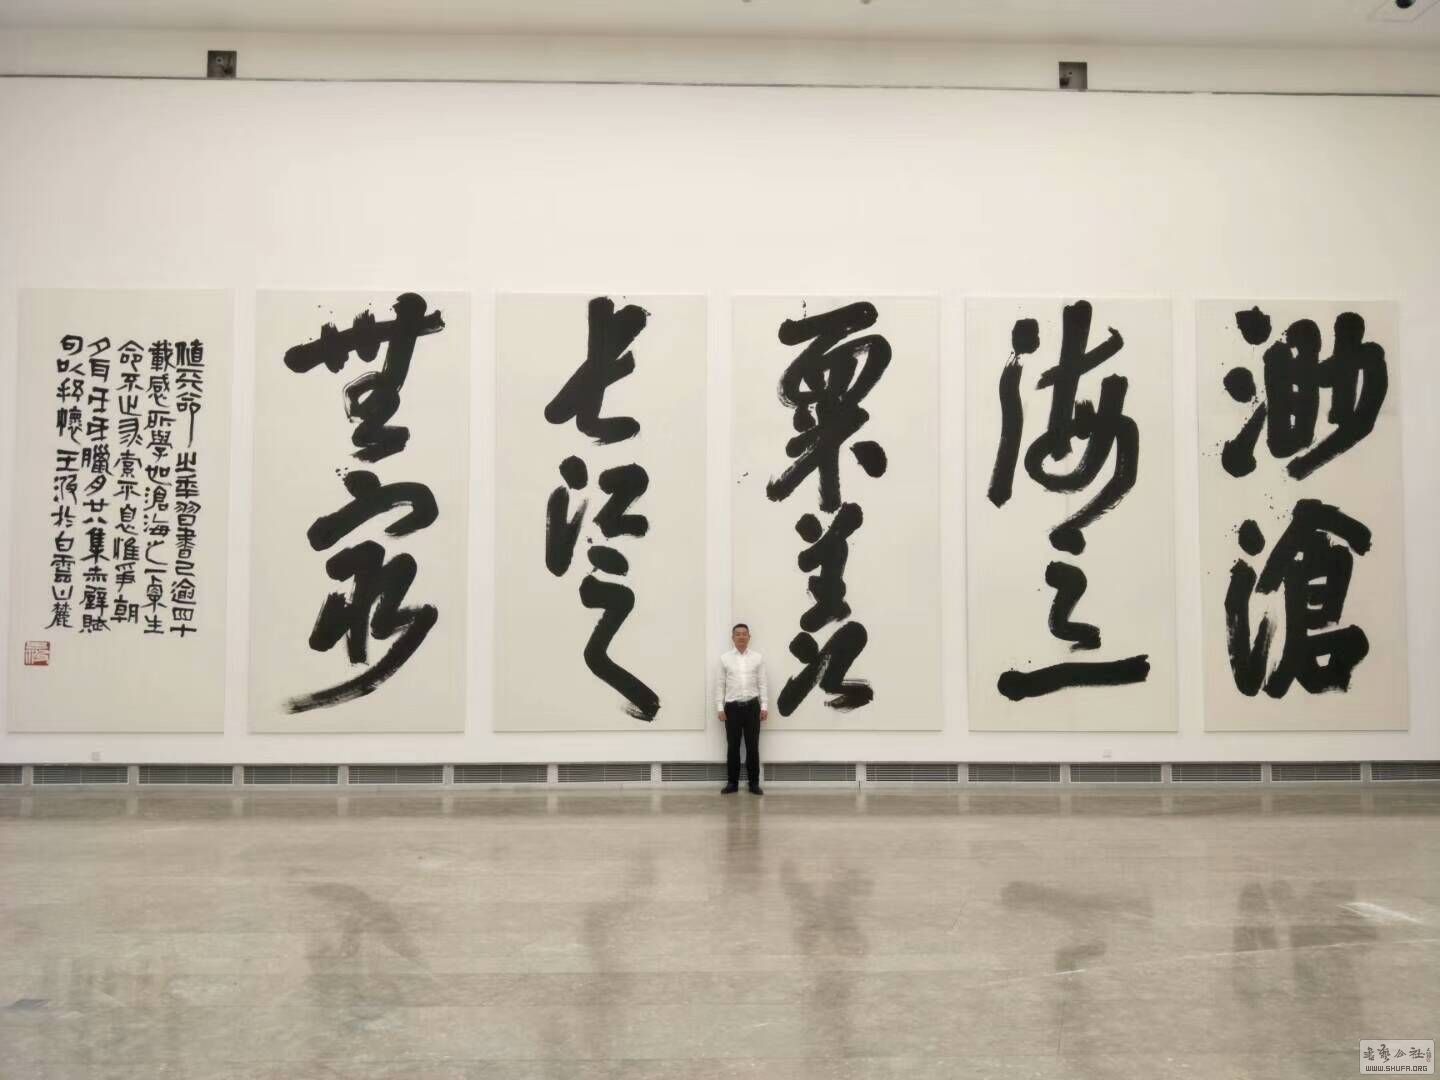 渺滄
海之一
粟羨
長江之
無窮
值天命之年習書已逾四十
載感所學如滄海之一粟生
命不止求索不息惟爭朝
夕臘月廿八集赤壁賦
句以抒懷王波於白雲山麓
书艺公社
WWW.SHUFA.ORG